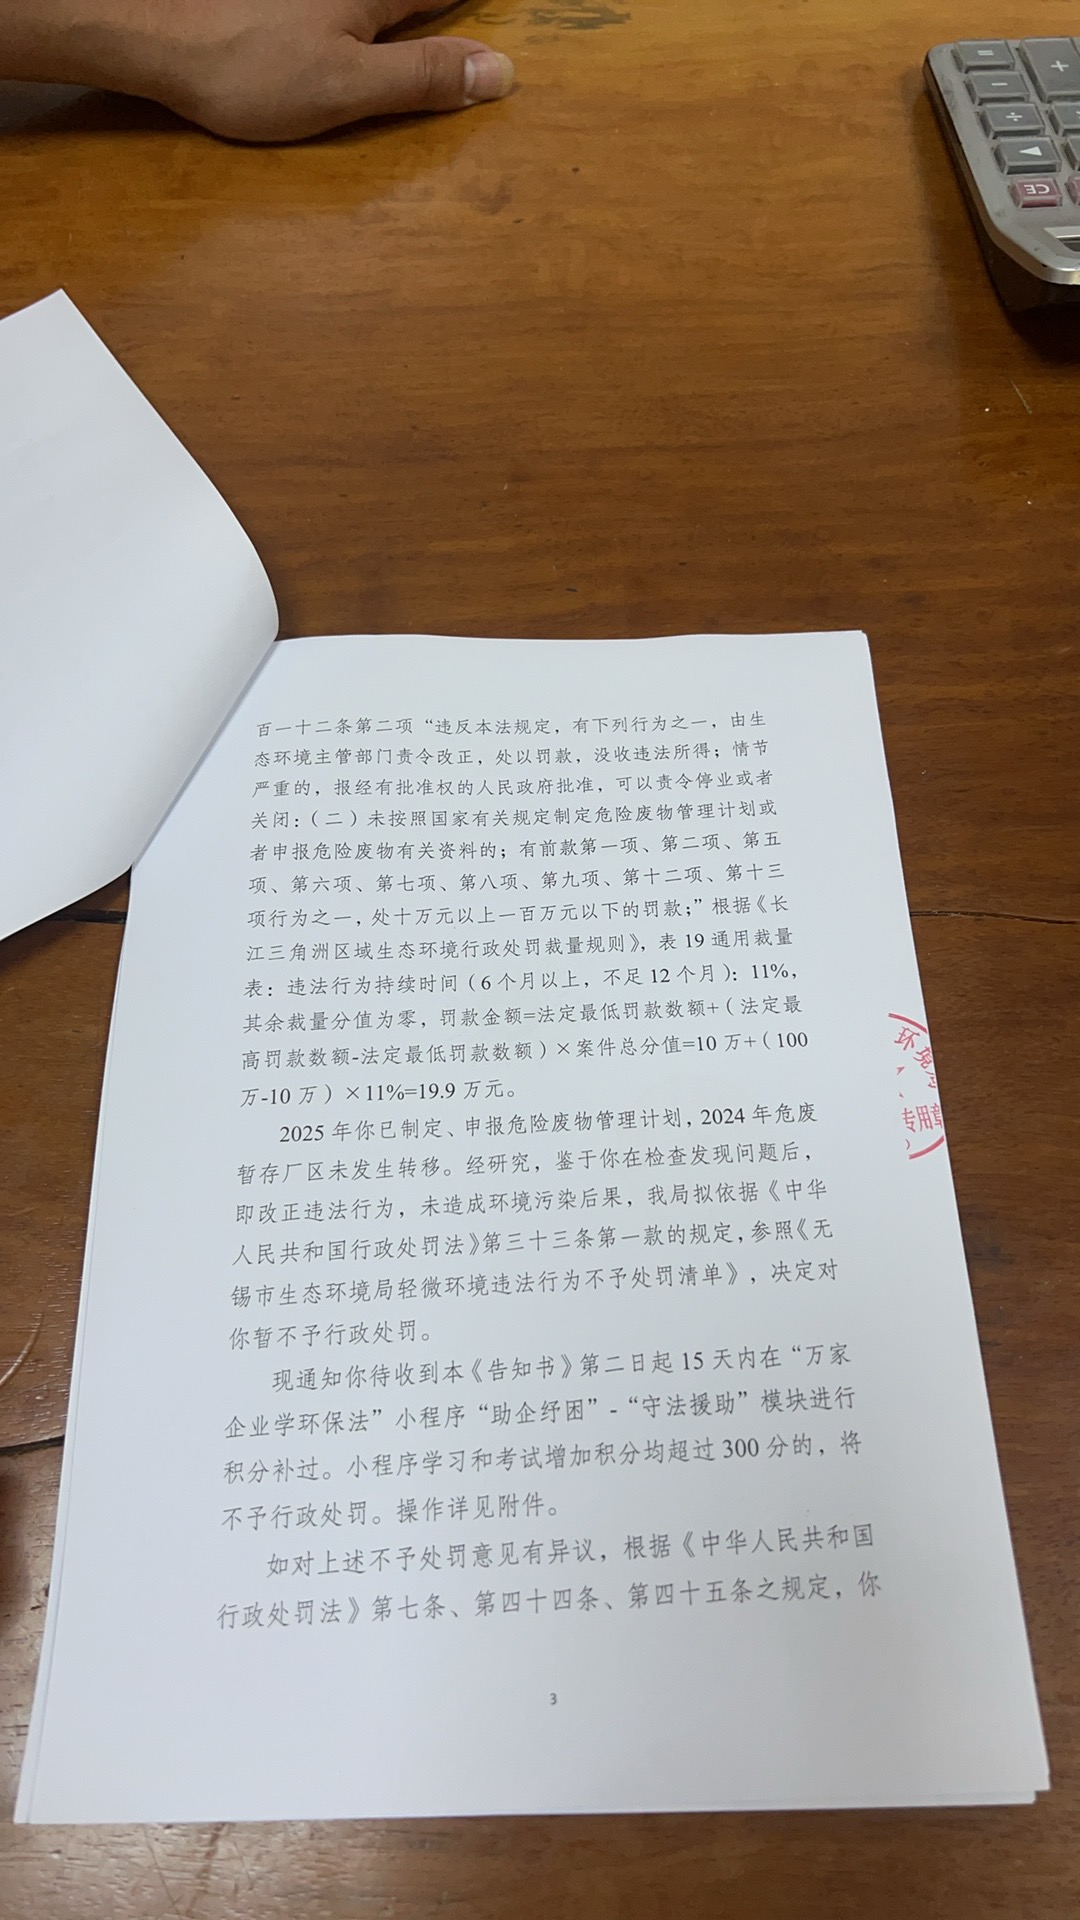 百一十二条第二项“违反本法规定，有下列行为之一，由生
态环境主管部门责令改正，处以罚款，没收违法所得；情节
严重的，报经有批准权的人民政府批准，可以责令停业或者
关闭：（二）未按照国家有关规定制定危险废物管理计划或
者申报危险废物有关资料的；有前款第一项、第二项、第五
项、第六项、第七项、第八项、第九项、第十二项、第十三
项行为之一，处十万元以上一百万元以下的罚款；”根据《长
江三角洲区域生态环境行政处罚裁量规则》，表 19 通用裁量
表：违法行为持续时间（6 个月以上，不足 12 个月）：11%，
其余裁量分值为零，罚款金额=法定最低罚款数额+（法定最
高罚款数额-法定最低罚款数额）×案件总分值=10 万+（100
万-10 万）×11%=19.9 万元。
2025 年你已制定、申报危险废物管理计划，2024 年危废
暂存厂区未发生转移。经研究，鉴于你在检查发现问题后，
即改正违法行为，未造成环境污染后果，我局拟依据《中华
人民共和国行政处罚法》第三十三条第一款的规定，参照《无
锡市生态环境局轻微环境违法行为不予处罚清单》，决定对
你暂不予行政处罚。
现通知你待收到本《告知书》第二日起 15 天内在“万家
企业学环保法”小程序“助企纾困”-“守法援助”模块进行
积分补过。小程序学习和考试增加积分均超过 300 分的，将
不予行政处罚。操作详见附件。
如对上述不予处罚意见有异议，根据《中华人民共和国
行政处罚法》第七条、第四十四条、第四十五条之规定，你
3
环境
专用章
=
+
−
÷
CE